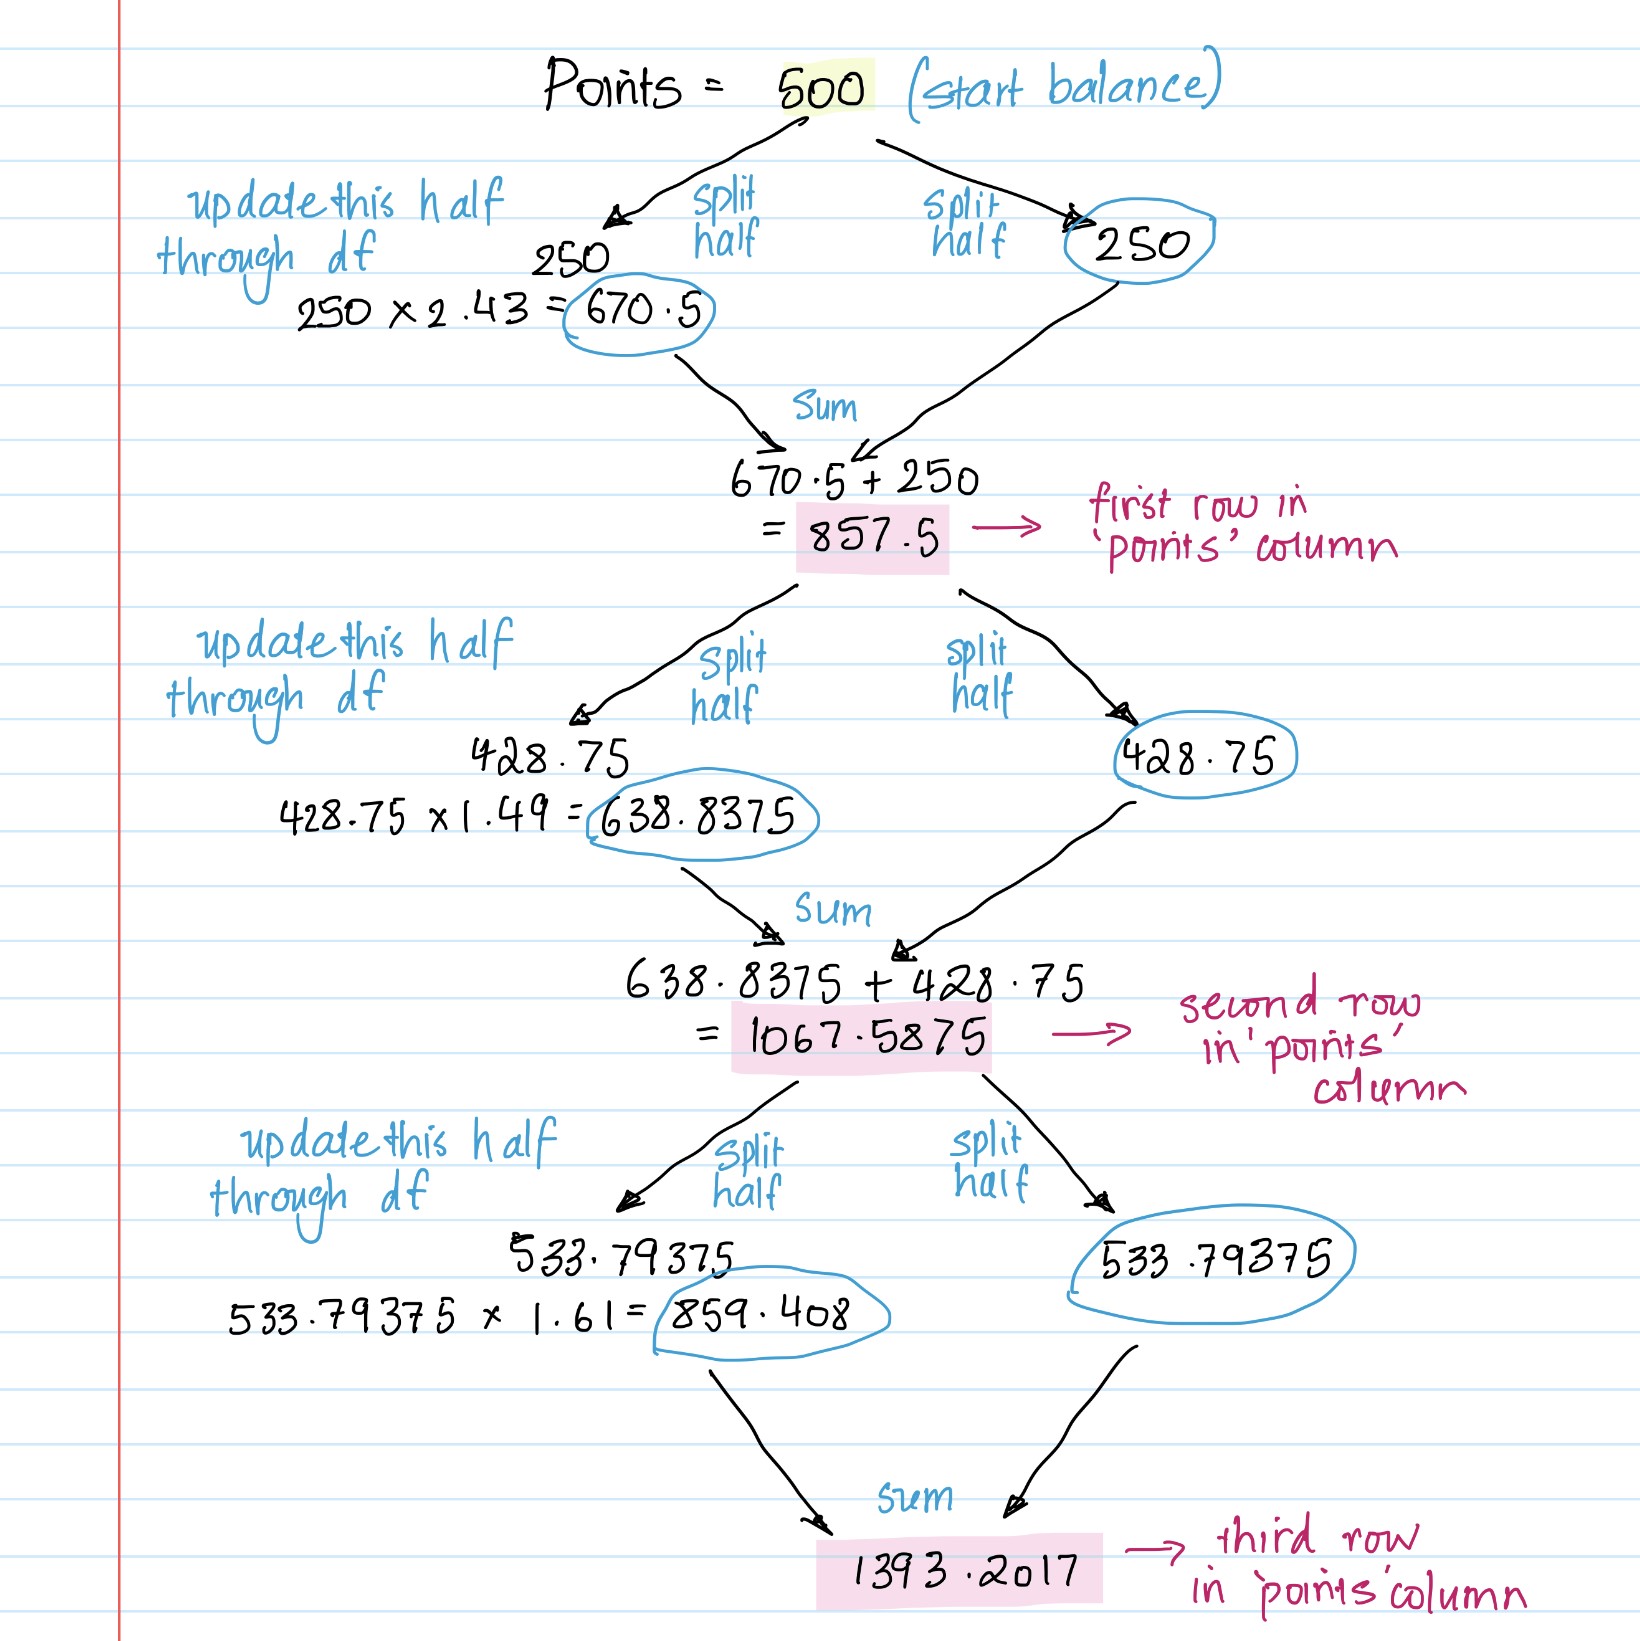 Points = 500 (start balance)
update this half
through df
split
half
split
half
250
250
250 × 2.43 = 670.5
Sum
670.5 + 250
= 857.5
first row in
'points' column
update this half
through df
split
half
split
half
428.75
428.75
428.75 × 1.49 = 638.8375
sum
638.8375 + 428.75
= 1067.5875
second row
in 'points'
column
update this half
through df
split
half
split
half
533.79375
533.79375
533.79375 × 1.61 = 859.408
sum
1393.2017
third row
in 'points' column